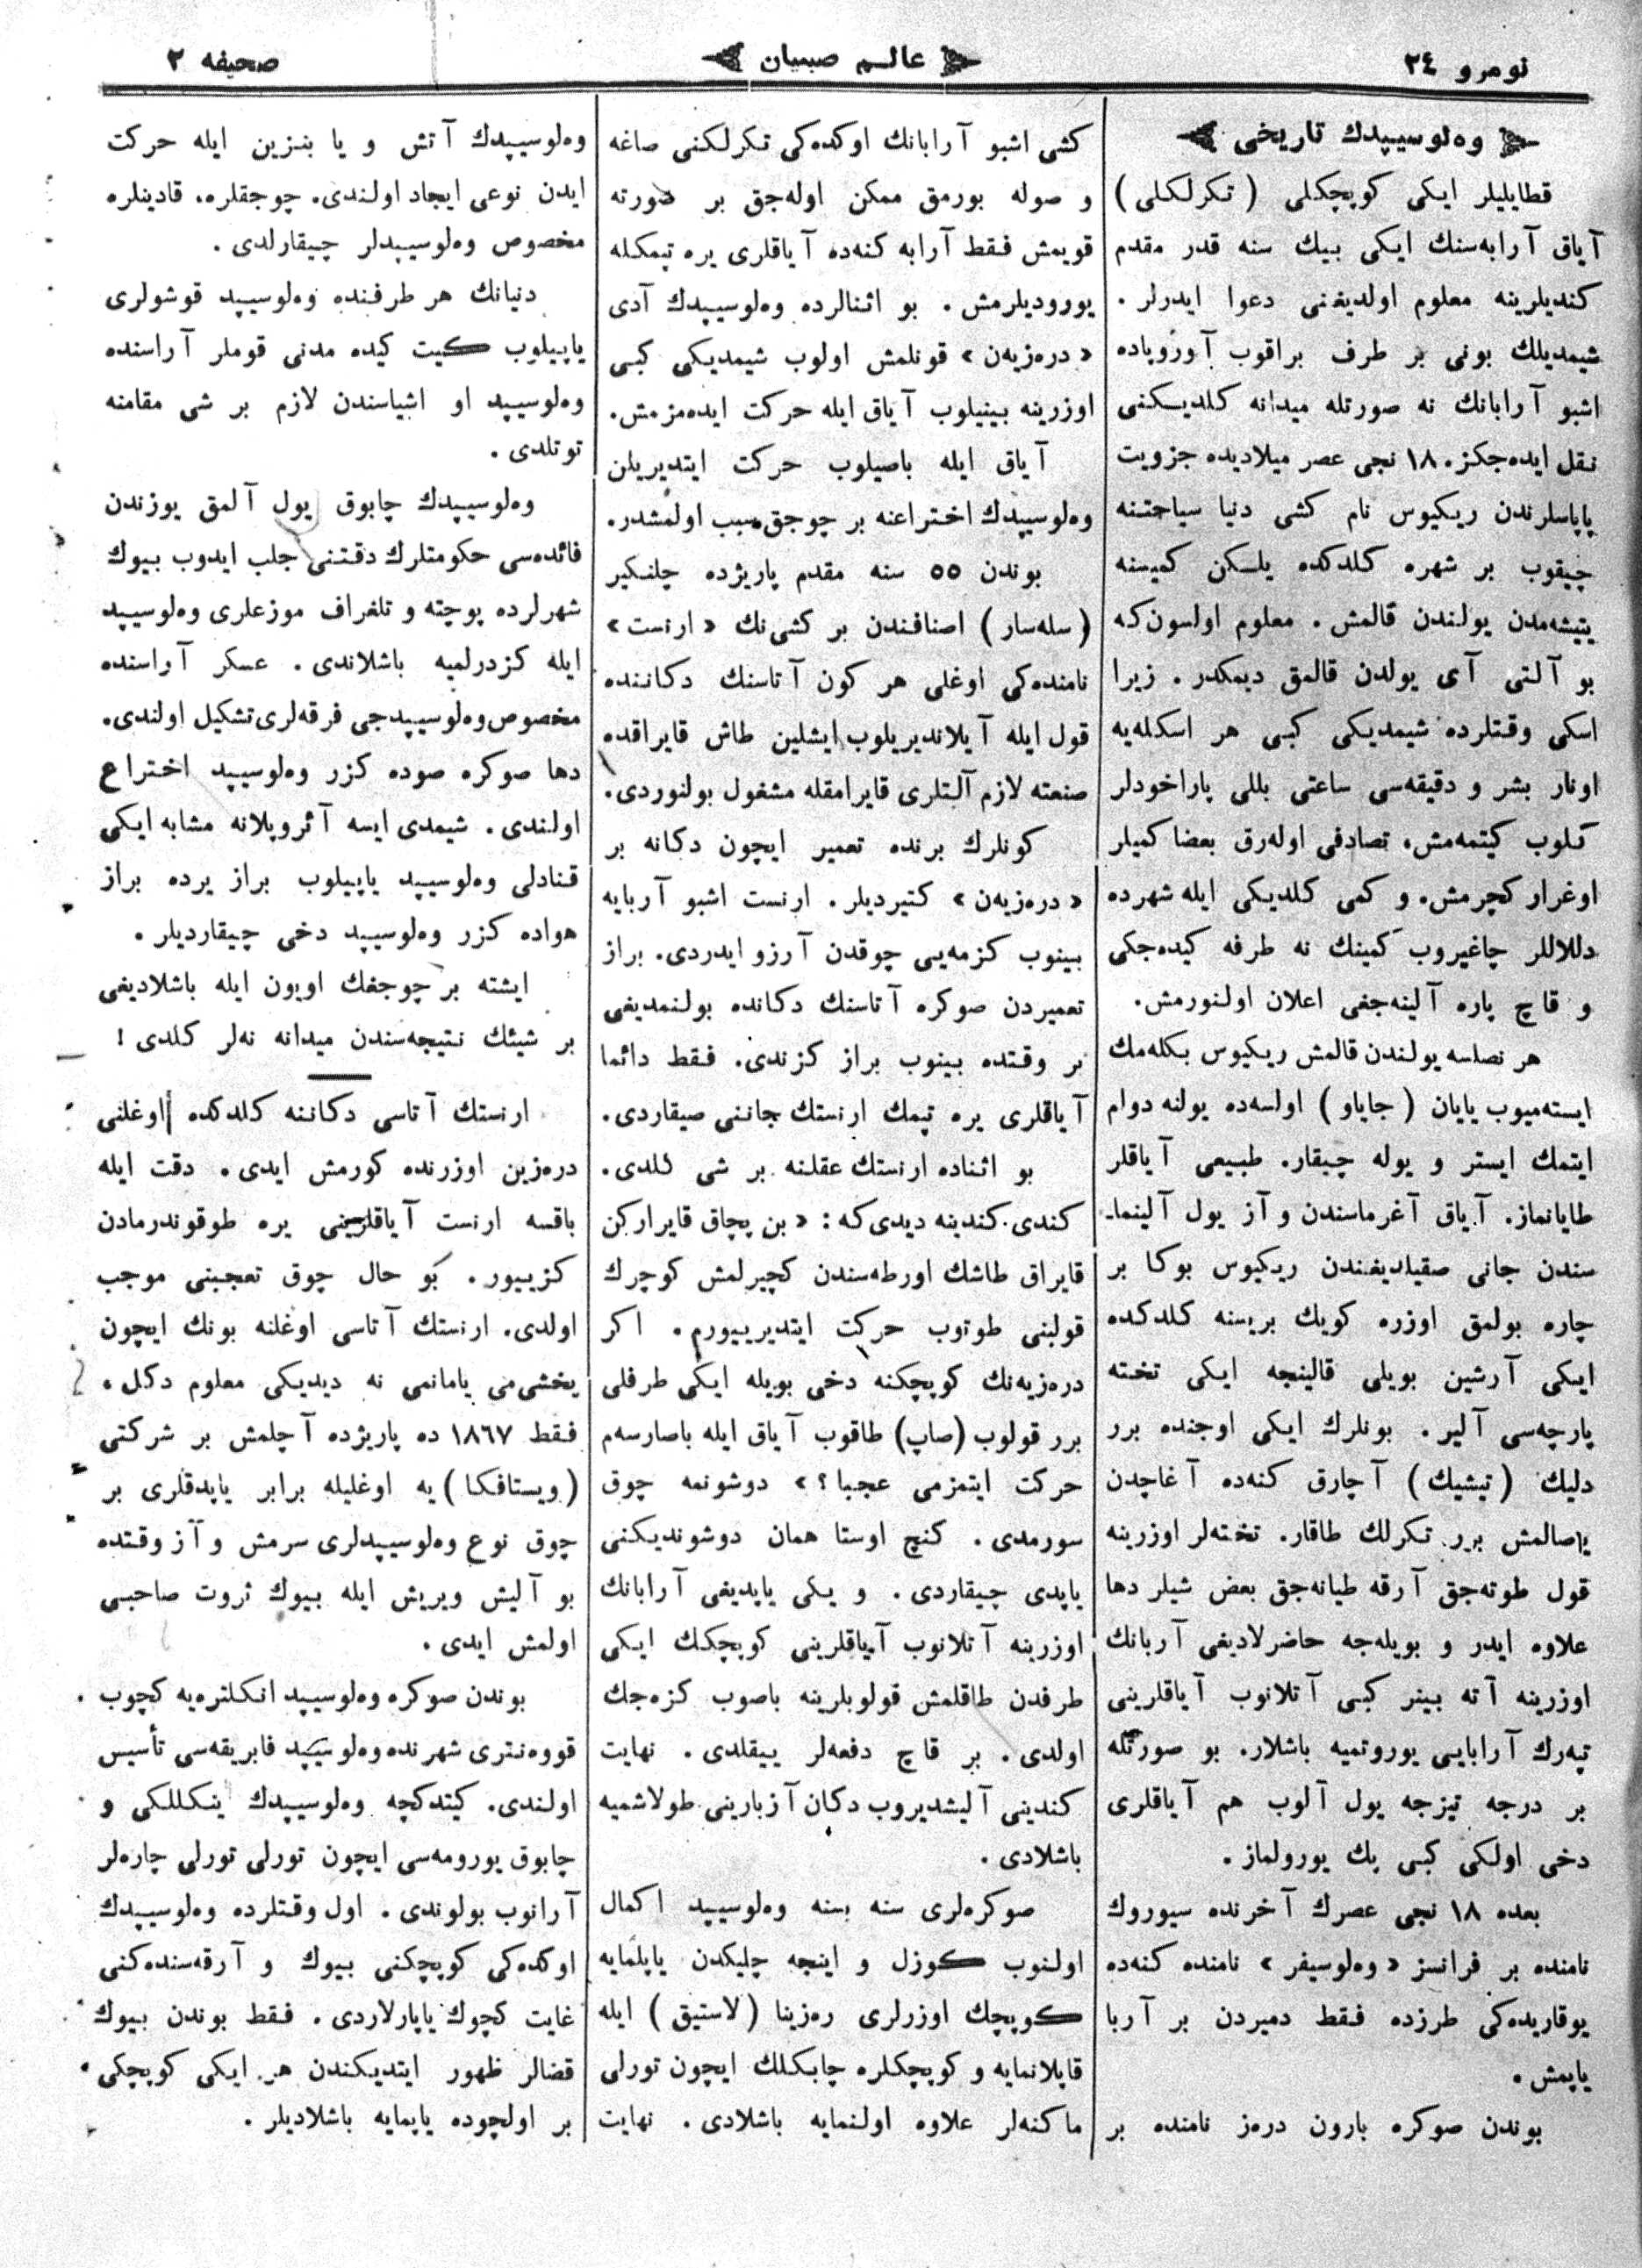 نومرو ٢٤
عالـم صبيان
صحيفه ٢
وه‌لوسيپدك تاريخى
قطايليلر ايكى كوپچكلى ( تكرلكلى )
آياق آرابه‌سنك ايكى بيك سنه قدر مقدم
كنديلرينه معلوم اولديغنى دعوا ايدرلر .
شيمديلك بونى بر طرف براقوب آوروپاده
اشبو آرابانك نه صورتله ميدانه كلديكنى
نقل ايده‌جكز. ١٨ نجى عصر ميلاديده جزويت
پاپاسلرندن ريكيوس نام كشى دنيا سياحتنه
چيقوب بر شهره كلدكده يلكن كميسنه
يتيشه‌مدن يولندن قالمش . معلوم اولسون‌كه
بو آلتى آى يولدن قالمق ديمكدر . زيرا
اسكى وقتلرده شيمديكى كبى هر اسكله‌يه
اونار بشر و دقيقه‌سى ساعتى بللى پاراخودلر
كلوب كيتمه‌مش، تصادفى اوله‌رق بعضا كميلر
اوغرار كچرمش. و كمى كلديكى ايله شهرده
دلاللر چاغيروب كمينك نه طرفه كيده‌جكى
و قاچ پاره آلينه‌جغى اعلان اولنورمش.
هر نصلسه يولندن قالمش ريكيوس بكله‌مك
ايسته‌ميوب يايان ( جاياو ) اولسه‌ده يولنه دوام
ايتمك ايستر و يوله چيقار. طبيعى آياقلر
طايانماز. آياق آغرماسندن و آز يول آلينما-
سندن جانى صقيلديغندن ريكيوس بوكا بر
چاره بولمق اوزره كويك بريسنه كلدكده
ايكى آرشين بويلى قالينجه ايكى تخته
پارچه‌سى آلير . بونلرك ايكى اوجنده برر
دليك ( تيشيك ) آچارق كنه‌ده آغاچدن
ياصالمش برر تكرلك طاقار. تخته‌لر اوزرينه
قول طوته‌جق آرقه طيانه‌جق بعض شيلر دها
علاوه ايدر و بويله‌جه حاضرلاديغى آربانك
اوزرينه آته بينر كبى آتلانوب آياقلرينى
تپه‌رك آرابايى يوروتميه باشلار. بو صورتله
بر درجه تيزجه يول آلوب هم آياقلرى
دخى اولكى كبى پك يورولماز .
بعده ١٨ نجى عصرك آخرنده سيوروك
نامنده بر فرانسز « وه‌لوسيفر » نامنده كنه‌ده
يوقاريده‌كى طرزده فقط دميردن بر آربا
ياپمش .
بوندن صوكره بارون دره‌ز نامنده بر
كشى اشبو آرابانك اوكده‌كى تكرلكنى صاغه
و صوله بورمق ممكن اوله‌جق بر صورته
قويمش فقط آرابه كنه‌ده آياقلرى يره تپمكله
يوروديلرمش . بو اثنالرده وه‌لوسيپدك آدى
« دره‌زيه‌ن » قونلمش اولوب شيمديكى كبى
اوزرينه بينيلوب آياق ايله حركت ايده‌مزمش.
آياق ايله باصيلوب حركت ايتديريلن
وه‌لوسيپدك اختراعنه بر چوجق سبب اولمشدر.
بوندن ٥٥ سنه مقدم پاريژده چلنكير
( سله‌سار ) اصنافندن بر كشى‌نك « ارنست »
نامنده‌كى اوغلى هر كون آتاسنك دكاننده
قول ايله آيلانديريلوب ايشلين طاش قايراقده
صنعته لازم آلتلرى قايرامقله مشغول بولنوردى.
كونلرك برنده تعمير ايچون دكانه بر
« دره‌زيه‌ن » كتيرديلر . ارنست اشبو آربايه
بينوب كزمه‌يى چوقدن آرزو ايدردى. براز
تعميردن صوكره آتاسنك دكانده بولنمديغى
بر وقتده بينوب براز كزندى. فقط دائما
آياقلرى يره تپمك ارنستك جاننى صيقاردى.
بو اثناده ارنستك عقلنه بر شى كلدى.
كندى كندينه ديدى‌كه : « بن پچاق قايراركن
قايراق طاشك اورطه‌سندن كچيرلمش كوچرك
قولبنى طوتوب حركت ايتديرييورم. اكر
دره‌زيه‌نك كوپچكنه دخى بويله ايكى طرفلى
برر قولوب (صاپ) طاقوب آياق ايله باصارسه‌م
حركت ايتمزمى عجبا؟ » دوشونمه چوق
سورمدى . كنج اوستا همان دوشونديكنى
ياپدى چيقاردى . و يكى ياپديغى آرابانك
اوزرينه آتلانوب آياقلرينى كوپچكك ايكى
طرفدن طاقلمش قولوبلرينه باصوب كزه‌جك
اولدى. بر قاچ دفعه‌لر ييقلدى . نهايت
كندينى آليشديروب دكان آزبارينى طولاشميه
باشلادى .
صوكره‌لرى سنه بسنه وه‌لوسيپد اكمال
اولنوب كوزل و اينجه چليكدن ياپلمايه
كوپچك اوزرلرى ره‌زينا ( لاستيق ) ايله
قاپلانمايه و كوپچكلره چابكلك ايچون تورلى
ماكنه‌لر علاوه اولنمايه باشلادى . نهايت
وه‌لوسيپدك آتش و يا بنزين ايله حركت
ايدن نوعى ايجاد اولندى. چوجقلره، قادينلره
مخصوص وه‌لوسيپدلر چيقارلدى .
دنيانك هر طرفنده وه‌لوسيپد قوشولرى
ياپيلوب كيت كيده مدنى قوملر آراسنده
وه‌لوسيپد او اشياسندن لازم بر شى مقامنه
توتلدى .
وه‌لوسيپدك چابوق يول آلمق يوزندن
فائده‌سى حكومتلرك دقتنى جلب ايدوب بيوك
شهرلرده پوچته و تلغراف موزعلرى وه‌لوسيپد
ايله كزدرلميه باشلاندى . عسكر آراسنده
مخصوص وه‌لوسيپدجى فرقه‌لرى تشكيل اولندى.
دها صوكره صوده كزر وه‌لوسيپد اختراع
اولندى . شيمدى ايسه آئروپلانه مشابه ايكى
قنادلى وه‌لوسيپد ياپيلوب براز يرده براز
هواده كزر وه‌لوسيپد دخى چيقارديلر .
ايشته بر چوجغك اويون ايله باشلاديغى
بر شيئك نتيجه‌سندن ميدانه نه‌لر كلدى !
ارنستك آتاسى دكاننه كلدكده اوغلنى
دره‌زين اوزرنده كورمش ايدى. دقت ايله
باقسه ارنست آياقلرينى يره طوقوندرمادن
كزييور . بو حال چوق تعجبنى موجب
اولدى. ارنستك آتاسى اوغلنه بونك ايچون
يخشى‌مى يامانمى نه ديديكى معلوم دكل .
فقط ١٨٦٧ ده پاريژده آچلمش بر شركتى
( ويستافكا ) يه اوغليله برابر ياپدقلرى بر
چوق نوع وه‌لوسيپدلرى سرمش و آز وقتده
بو آليش ويريش ايله بيوك ثروت صاحبى
اولمش ايدى .
بوندن صوكره وه‌لوسيپد انكلتره‌يه كچوب
قووه‌نترى شهرنده وه‌لوسيپد فابريقه‌سى تأسيس
اولندى. كيتدكچه وه‌لوسيپدك ينكللكى و
چابوق يورومه‌سى ايچون تورلى تورلى چاره‌لر
آرانوب بولوندى . اول وقتلرده وه‌لوسيپدك
اوكده‌كى كوپچكنى بيوك و آرقه‌سنده‌كنى
غايت كچوك ياپارلاردى . فقط بوندن بيوك
قضالر ظهور ايتديكندن هر ايكى كوپچكى
بر اولچوده ياپمايه باشلاديلر .